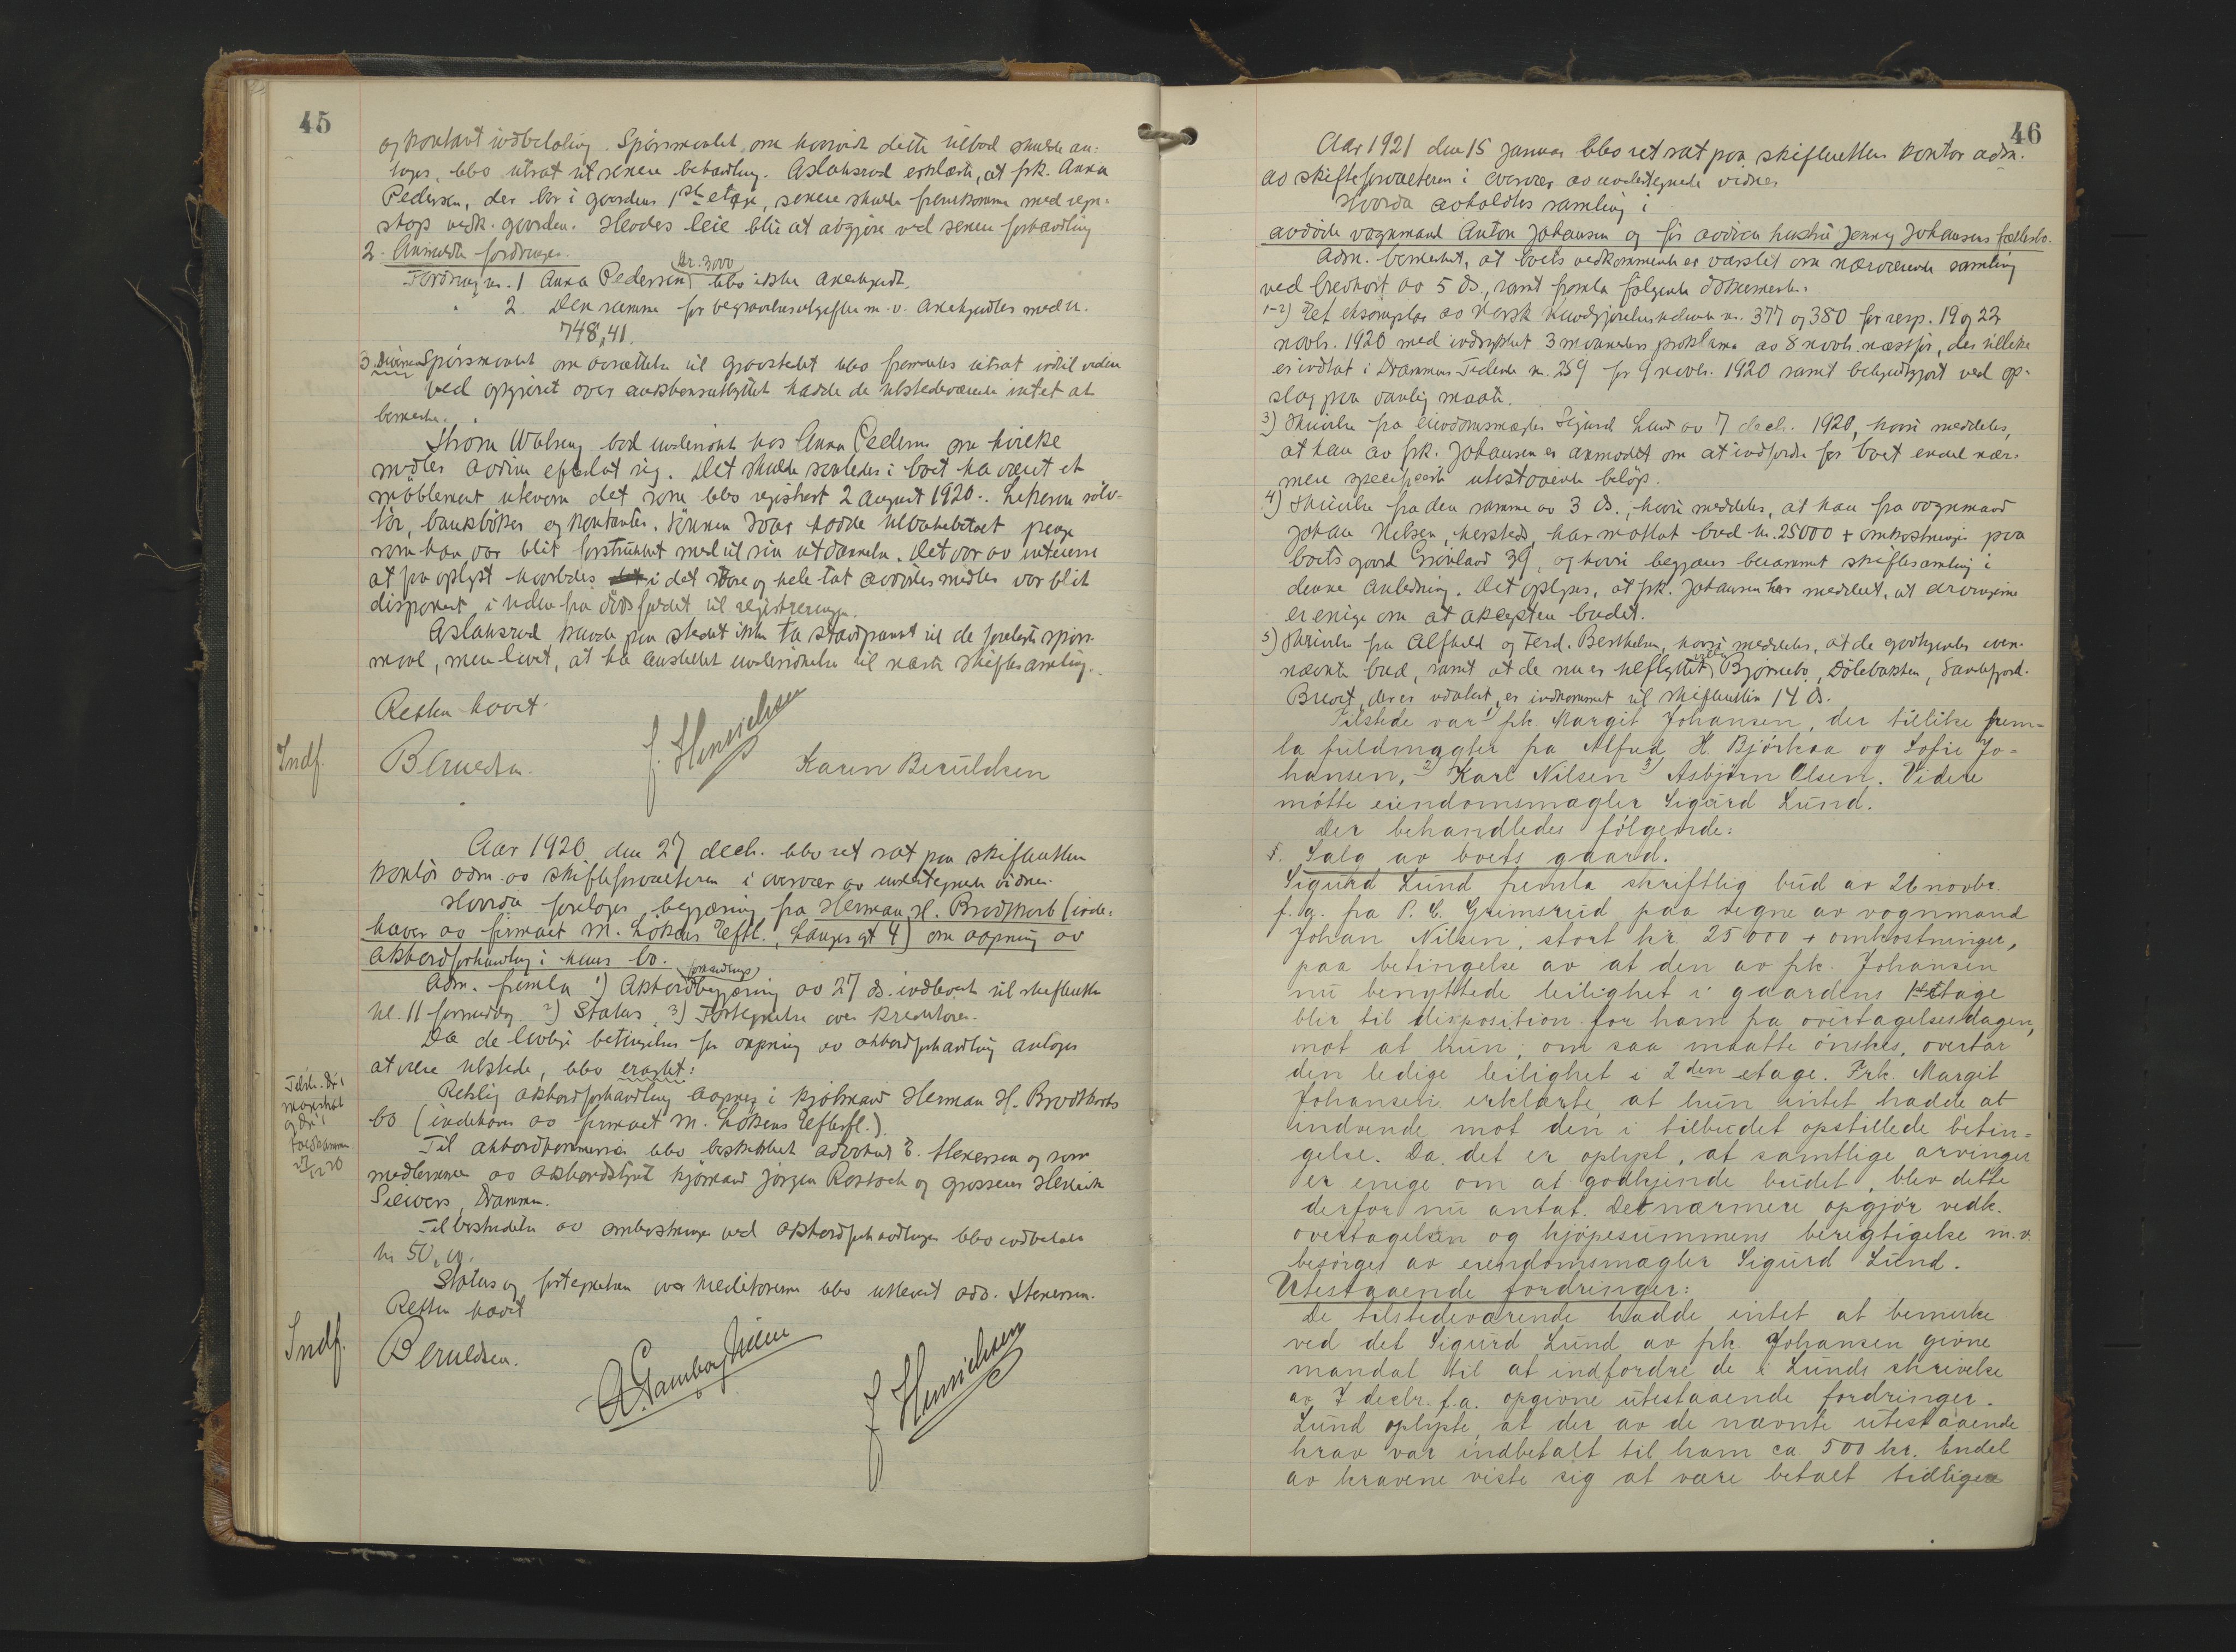 45
og kontant indbetaling. Spørsmaalet om hvorvidt dette tilbud skulde an-
tages, blev utsat til senere behandling. Aslaksrud erklærte, at frk. Anna
Pedersen, der bor i gaardens 1ste etage, senere skulde fremkomme med
vedk. gaarden. Hendes leie blir at avgjøre ved senere forhandling
2. Anmeldte fordringer.
Fordring nr. 1 Anna Pedersen kr. 3000 blev ikke anerkjendt.
" 2. Den samme for begravelsesutgifter m.v. anerkjendtes med kr.
748,41.
3. Spørsmaalet om avsættelse til gravstedet blev fremdeles utsat indtil videre
Ved opgjøret over auktionsutbyttet hadde de tilstedeværende intet at
bemerke.
Strøm Walseng bad undersøkt hos Anna Pedersen om hvilke
midler avdøde efterlot sig. Det skulde saaledes i boet ha været et
møblement utenom det som blev registrert 2 august 1920. Likesom sølv-
tøi, bankbøker og kontanter. Sønnen hadde tilbakebetalt penge
som han var blit forstrukket med til sin utdannelse. Det var av interesse
at faa oplyst hvorledes i det store og hele tat avdødes midler var blit
disponert i tiden fra dødsfaldet til registreringen.
Aslaksrud kunde paa stedet ikke ta standpunkt til de forelagte spørs-
maal, men lovet, at ha anstillet undersøkelse til næste skiftesamling.
Retten hævet.
Indf.
Beruldsen. J. Henrichsen Karen Beruldsen
Aar 1920 den 27 decb. blev ret sat paa skifterettens
kontor adm. av skifteforvalteren i overvær av undertegnede vidner.
Hvorda foretoges begjæring fra Herman H. Brodtkorb (inde-
haver av firmaet M. Løkens Eftf., Hauges gt 4) om aapning av
akkordforhandling i hans bo.
Adm. fremla 1) Akkordforhandlingsbegjæring av 27 ds. indlevert til skifteretten
kl. 11 formiddag 2) Status, 3) Fortegnelse over kreditorer.
Da de lovlige betingelser for aapning av akkordforhandling antages
at være tilstede, blev eragtet:
Retslig akkordforhandling aapnes i kjøbmand Herman H. Brodtkorbs
bo (indehaver av firmaet M. Løkens Efterflg.).
Til akkordkommissær blev beskikket advokat E. Stenersen og som
medlemmer av akkordstyret kjøbmand Jørgen Rostoch og grosserer Henrik
Siewers, Drammen.
Til bestridelse av omkostninger ved akkordforhandlingen blev indbetalt
kr 50,00.
Status og fortegnelsen over kreditorerne blev utlevert adv. Stenersen.
Retten hævet
Indf.
Beruldsen. J. Henrichsen
46
Aar 1921 den 15 januar blev ret sat paa skifterettens kontor adm.
av skifteforvalteren i overvær av undertegnede vidner
Hvorda avholdtes samling i
avdøde vognmand Anton Johansen og før avdøde hustru Jenny Johansens fællesbo.
Adm. bemerket, at boets vedkommende er varslet om nærværende samling
ved brevkort av 5 ds., samt fremla følgende dokumenter:
1-2) Et eksemplar av Norsk Kundgjørelsestidende nr. 377 og 380 for resp. 19 og 22
novb. 1920 med indrykket 3 maaneders proklama av 8 novb. næstfør, der tillike
er indtat i Drammens Tidende nr. 259 for 9 novb. 1920 samt bekjendtgjort ved op-
slag paa vanlig maate.
3) Skrivelse fra eiendomsmægler Sigurd Lund av 7 decb. 1920, hvori meddeles,
at han av frk. Johansen er anmodet om at indfordre for boet endel nær-
mere specificerte utestaaende beløp.
4) Skrivelse fra den samme av 3 ds., hvori meddeles, at han fra vognmand
Johan Nilsen, hersteds, har mottat bud kr. 25000 + omkostninger paa
boets gaard Grønland 39, og hvori begjæres berammet skiftesamling i
denne anledning. Det oplyses, at frk. Johansen har meddelt, at arvingerne
er enige om at akceptere budet.
5) Skrivelse fra Alfhild og Ferd. Berthelsen, hvori meddeles, at de godkjender oven-
nævnte bud, samt at de nu er utflyttet Bjørnebo, Dølebakken, Sandefjord.
Brevet, der er udatert, er indkommet til skifteretten 14 ds.
Tilstede var 1) frk. Margit Johansen, der tillike frem-
la fuldmagter fra Alfred H. Bjørkaa og Sofie Jo-
hansen, 2) Karl Nilsen 3) Asbjørn Olsen. Videre
møtte eiendomsmægler Sigurd Lund.
Der behandledes følgende:
1. Salg av boets gaard.
Sigurd Lund fremla skriftlig bud av 26 novbr.
f.a. fra P. C. Grimsrud paa vegne av vognmand
Johan Nilsen, stort kr. 25 000 + omkostninger,
paa betingelse av at den av frk. Johansen
nu benyttede leilighet i gaardens 1ste etage
blir til disposition for ham fra overtagelsesdagen,
mot at hun, om saa maatte ønskes, overtar
den ledige leilighet i 2den etage. Frk. Margit
Johansen erklærte, at hun intet hadde at
indvende mot den i tilbudet opstillede betin-
gelse. Da det er oplyst, at samtlige arvinger
er enige om at godkjende budet, blev dette
derfor nu antat. Det nærmere opgjør vedk.
overtagelsen og kjøpesummens berigtigelse m.v.
besørges av eiendomsmægler Sigurd Lund.
Utestaaende fordringer:
De tilstedeværende hadde intet at bemerke
ved det Sigurd Lund av frk. Johansen givne
mandat til at indfordre de i Lunds skrivelse
av 7 decbr. f.a. opgivne utestaaende fordringer.
Lund oplyste, at der av de nævnte utestaaende
krav var indbetalt til ham ca 500 kr. Endel
av kravene viste sig at være betalt tidligere